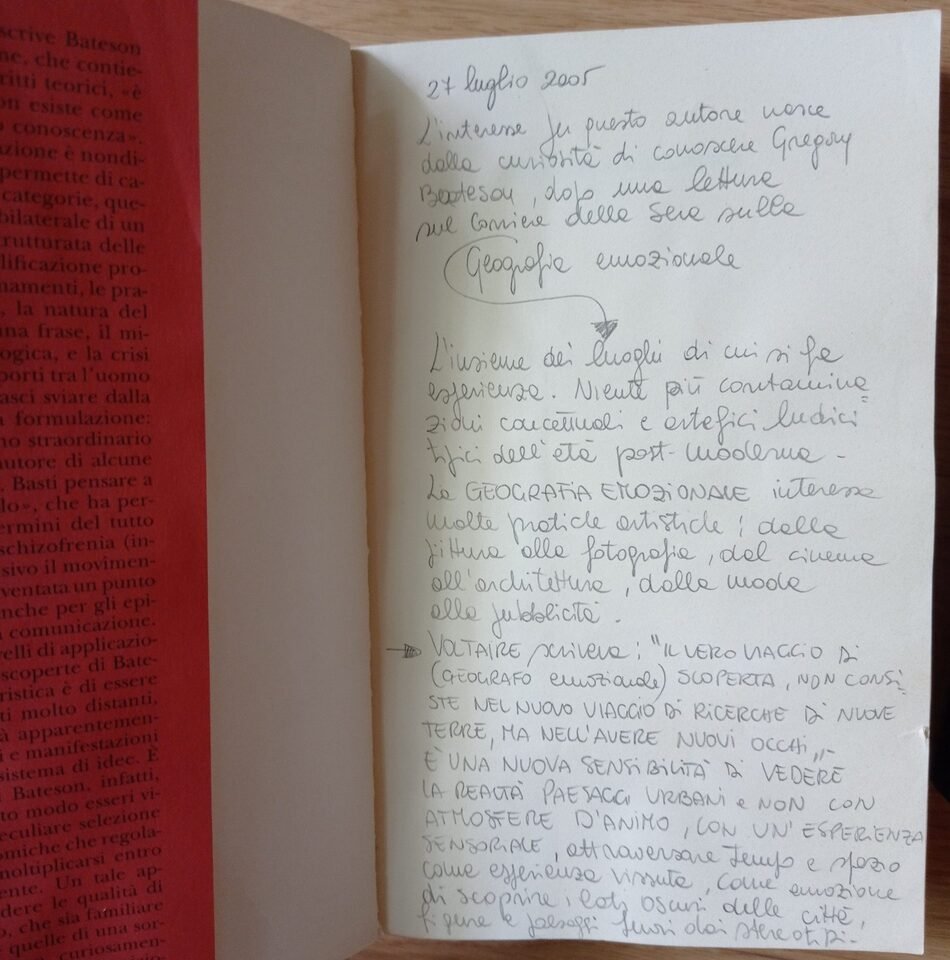 scrive Bateson
ne, che contie-
ritti teorici, «è
on esiste come
o conoscenza».
azione è nondi-
permette di ca-
categorie, que-
bilaterale di un
rutturata delle
lificazione pro-
namenti, le pra-
, la natura del
una frase, il mi-
ogica, e la crisi
porti tra l'uomo
asci sviare dalla
a formulazione:
no straordinario
autore di alcune
. Basti pensare a
lo», che ha per-
ermini del tutto
schizofrenia (in-
sivo il movimen-
ventata un punto
anche per gli epi-
a comunicazione.
velli di applicazio-
scoperte di Bate-
ristica è di essere
ti molto distanti,
à apparentemen-
i e manifestazioni
sistema di idee. È
Bateson, infatti,
to modo esseri vi-
eculiare selezione
omiche che regola-
moltiplicarsi entro
ente. Un tale ap-
dere le qualità di
o, che sia familiare
e quelle di una sor-
curiosamen-
27 luglio 2005
L'interesse per questo autore nasce
dalla curiosità di conoscere Gregory
Beateson, dopo una lettura
sul Corriere della Sera sulla
Geografia emozionale
L'insieme dei luoghi di cui si fa
esperienza. Niente più contamina=
zioni concettuali e artefici ludici
tipici dell'età post-moderna -
La GEOGRAFIA EMOZIONALE interessa
molte pratiche artistiche: dalla
pittura alla fotografia, dal cinema
all'architettura, dalla moda
alla pubblicità.
→ VOLTAIRE scriveva: "IL VERO VIAGGIO DI
(GEOGRAFO emozionale) SCOPERTA, NON CONSI=
STE NEL NUOVO VIAGGIO DI RICERCHE DI NUOVE
TERRE, MA NELL'AVERE NUOVI OCCHI„-
È UNA NUOVA SENSIBILITÀ DI VEDERE
LA REALTÀ PAESAGGI URBANI e NON CON
ATMOSFERE D'ANIMO, CON UN'ESPERIENZA
SENSORIALE, attraversare tempo e spazio
come esperienza vissuta, come emozione
di scoprire i lati oscuri delle città,
figure e paesaggi fuori dai stereotipi.